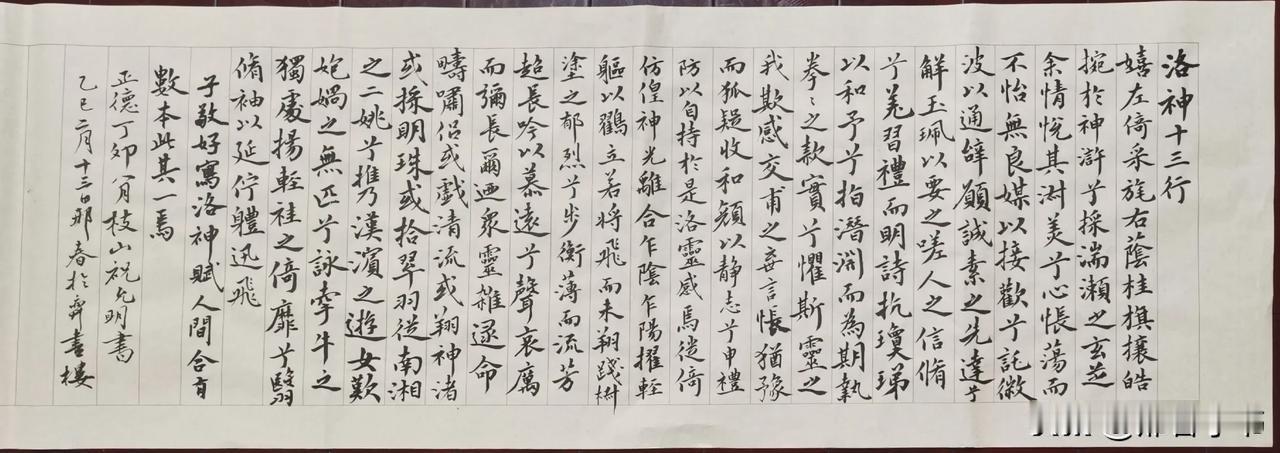 洛神十三行
嬉左倚采旄右蔭桂旗攘皓
捥於神滸兮採湍瀨之玄芝
余情悅其淑美兮心悵蕩而
不怡無良媒以接歡兮託微
波以通辭願誠素之先達兮
解玉珮以要之嗟人之信脩
兮羌習禮而明詩抗瓊珶
以和予兮指潛淵而為期執
拳之款實兮懼斯靈之
我欺感交甫之棄言悵猶豫
而狐疑收和顏以靜志兮申禮
防以自持於是洛靈感焉徙倚
仿偟神光離合乍陰乍陽擢輕
軀以鶴立若將飛而未翔踐椒
塗之郁烈兮步衡薄而流芳
超長吟以慕遠兮聲哀厲
而彌長爾迺眾靈雜遝命
疇嘯侶或戲清流或翔神渚
或採明珠或拾翠羽從南湘
之二姚兮攜漢濱之遊女歎
匏媧之無匹兮詠牽牛之
獨處揚輕袿之倚靡兮翳
脩袖以延佇體迅飛
子敬好寫洛神賦人間合有
數本此其一焉
正德丁卯八月枝山祝允明書
乙巳二月十三日邢春於舜書樓